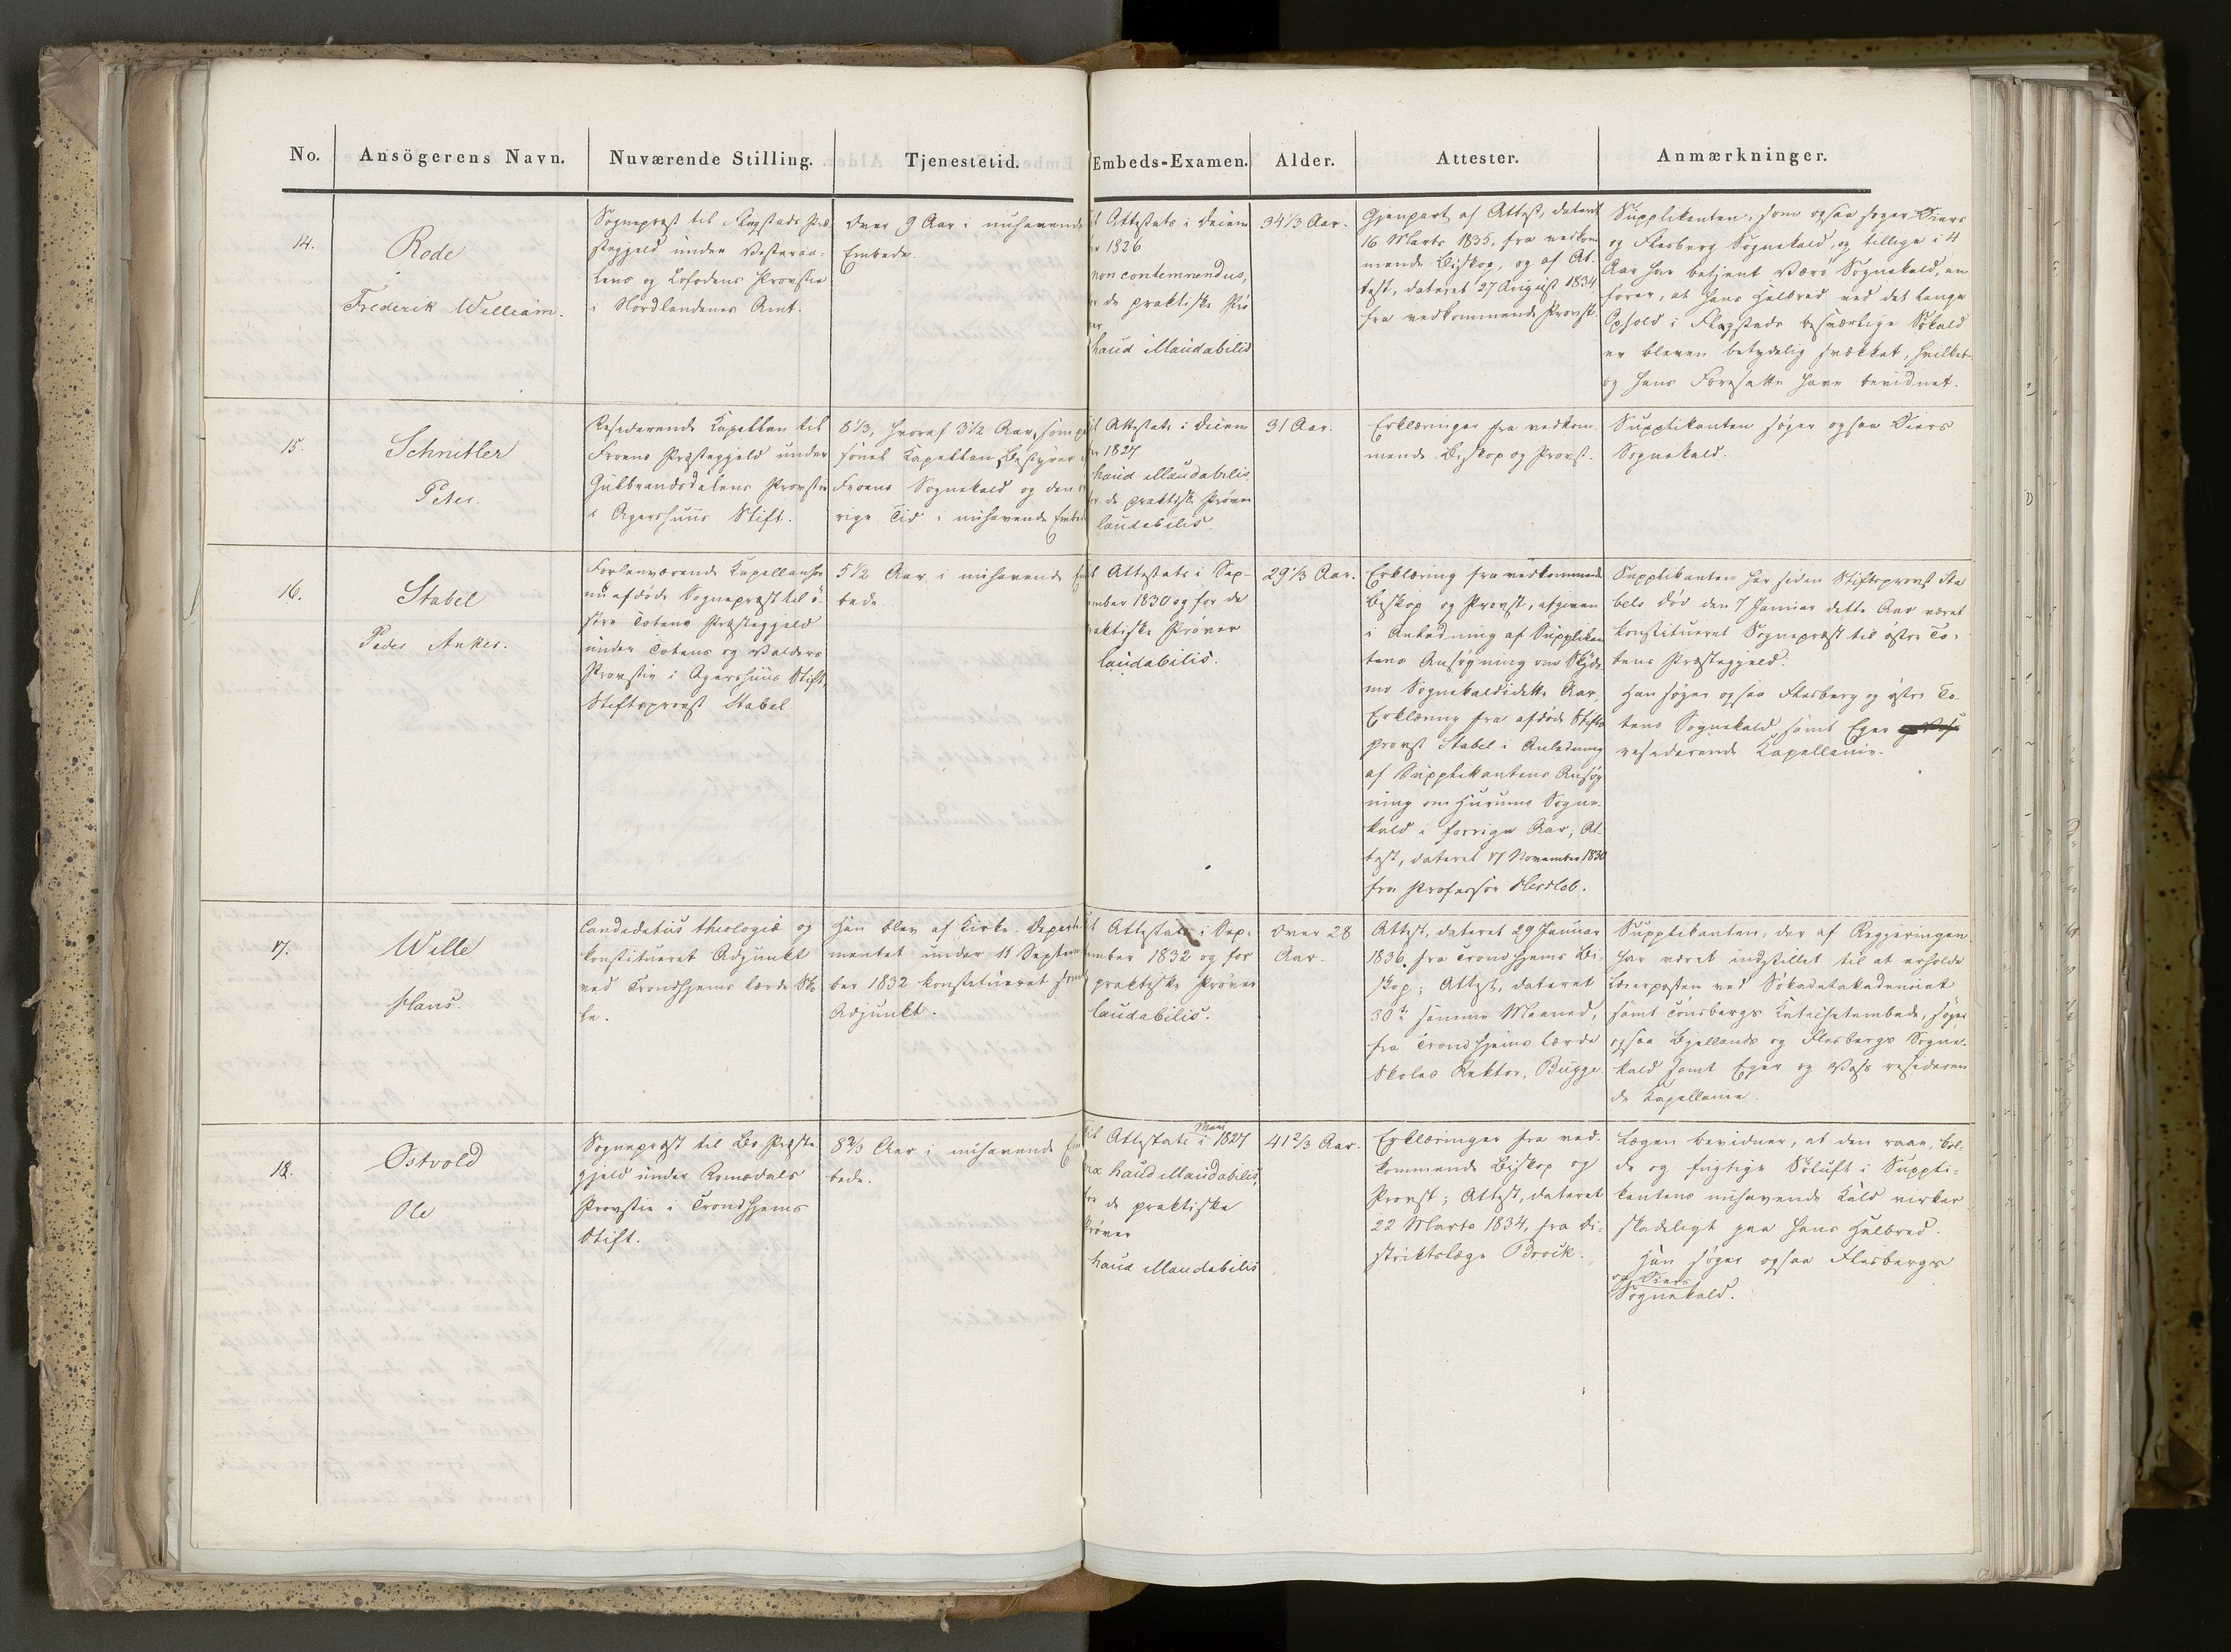 No.
Ansögerens Navn.
Nuværende Stilling.
Tjenestetid.
Embeds-Examen.
Alder.
Attester.
Anmærkninger.
14.
Rode
Frederik William.
Sognepræst til Flagstads Præ
stegjeld under Vesteraa-
lens og Lofodens Provstie
i Nordlandenes Amt.
Over 9 Aar i nuhavende
Embede.
til Attestats i Decem
er 1826
non contemnendus,
for de praktiske Prö
ver
haud illaudabilis
34 1/3 Aar.
Gjenpart af Attest, dateret
16 Marts 1835, fra vedkom
mende Biskop, og af At-
test, dateret 27 August 1834
fra vedkommende Provst.
Supplikanten, som ogsaa søger Viers
og Flesberg Sognekald, og tillige i 4
Aar har betjent Værø Sognekald, an
fører, at hans Helbred ved det lange
Ophold i Flagstads besværlige Søkald
er bleven betydelig svækket, hvilket
og hans Foresatte have bevidnet.
15.
Schnitler
Peter.
Residerende Kapellan til
Froens Præstegjeld under
Gulbrandsdalens Provstie
i Agershuus Stift.
8 1/3, hvoraf 3 1/2 Aar, som per
sonel Kapellan, Bestyrer af
Froens Sognekald og den öv
rige Tid i nuhavende Embede
til Attestats i Decem
er 1827
haud illaudabilis
for de praktiske Prøver
laudabilis.
31 Aar.
Erklæringer fra vedkom-
mende Biskop og Provst.
Supplikanten søger ogsaa Viers
Sognekald.
16.
Stabel
Peder Anker.
Forhenværende Kapellan hos
nu afdøde Sognepræst til ö-
stre Totens Præstegjeld
under Totens og Valders
Provstie i Agershuus Stift,
Stiftsprovst Stabel
5 1/2 Aar i nuhavende Em
bede
til Attestats i Sep-
tember 1830 og for de
praktiske Prøver
laudabilis.
29 1/3 Aar.
Erklæring fra vedkommende
Biskop og Provst, afgiven
i Anledning af Supplikan
tens Ansøgning om
Sognekald i dette Aar,
Erklæring fra afdøde Stifts
provst Stabel i Anledning
af Supplikantens Ansøg
ning om Hurums Sogne-
kald i forrige Aar, At-
test, dateret 17 November 1830
fra Professor Hersleb.
Supplikanten har siden Stiftsprovst Sta
bels Død den 7 Januar dette Aar været
konstitueret Sognepræst til østre To-
tens Præstegjeld.
Han søger ogsaa Flesberg og østre To-
tens Sognekald samt Eger
residerende Kapellanie.
17.
Wille
Hans.
Candidatus theologiæ og
konstitueret Adjunkt
ved Trondhjems lærde Sko
le.
Han blev af Kirke-Departe
mentet under 11 Septem
ber 1832 konstitueret som
Adjunkt.
til Attestats i Sep-
tember 1832 og for
praktiske Prøver
laudabilis.
Over 28
Aar.
Attest, dateret 29 Januar
1836, fra Trondhjems Bi-
skop; Attest, dateret
30te samme Maaned,
fra Trondhjems lærde
Skoles Rektor, Bugge
Supplikanten, der af Regjeringen
har været indstillet til at erholde
Lærerposten ved Søkadetakademiet
samt Tönsbergs Katechetembede, søger
ogsaa Bjellands og Flesbergs Sogne-
kald samt Eger og Voss resideren
de Kapellanie.
18.
Østvold
Ole
Sognepræst til Bö Præste
gjeld under Romsdals
Provstie i Trondhjems
Stift.
8 2/3 Aar i nuhavende Em
bede.
til Attestats i Mai 1827
præ haud illaudabilis,
for de praktiske
Prøver
haud illaudabilis
41 2/3 Aar.
Erklæringer fra ved-
kommende Biskop og
Provst; Attest, dateret
22 Marts 1834, fra Di-
striktslæge Brock.
Lægen bevidner, at den raae, kol-
de og fugtige Söluft i Suppli-
kantens nuhavende Kald virker
skadeligt paa hans Helbred.
Han søger ogsaa Flesbergs
og Viers
Sognekald.